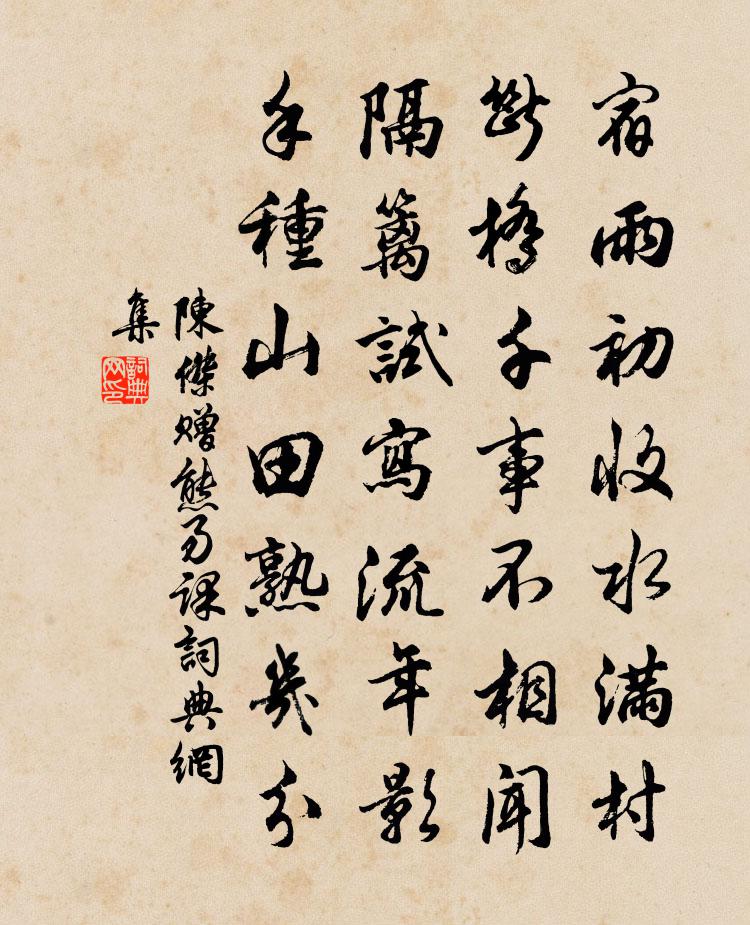 宿雨初收水滿村
斷橋千事不相聞
隔籬試寫流年影
手種山田熟幾分
陳傑贈熊易課詞典網
集
詞典
网印